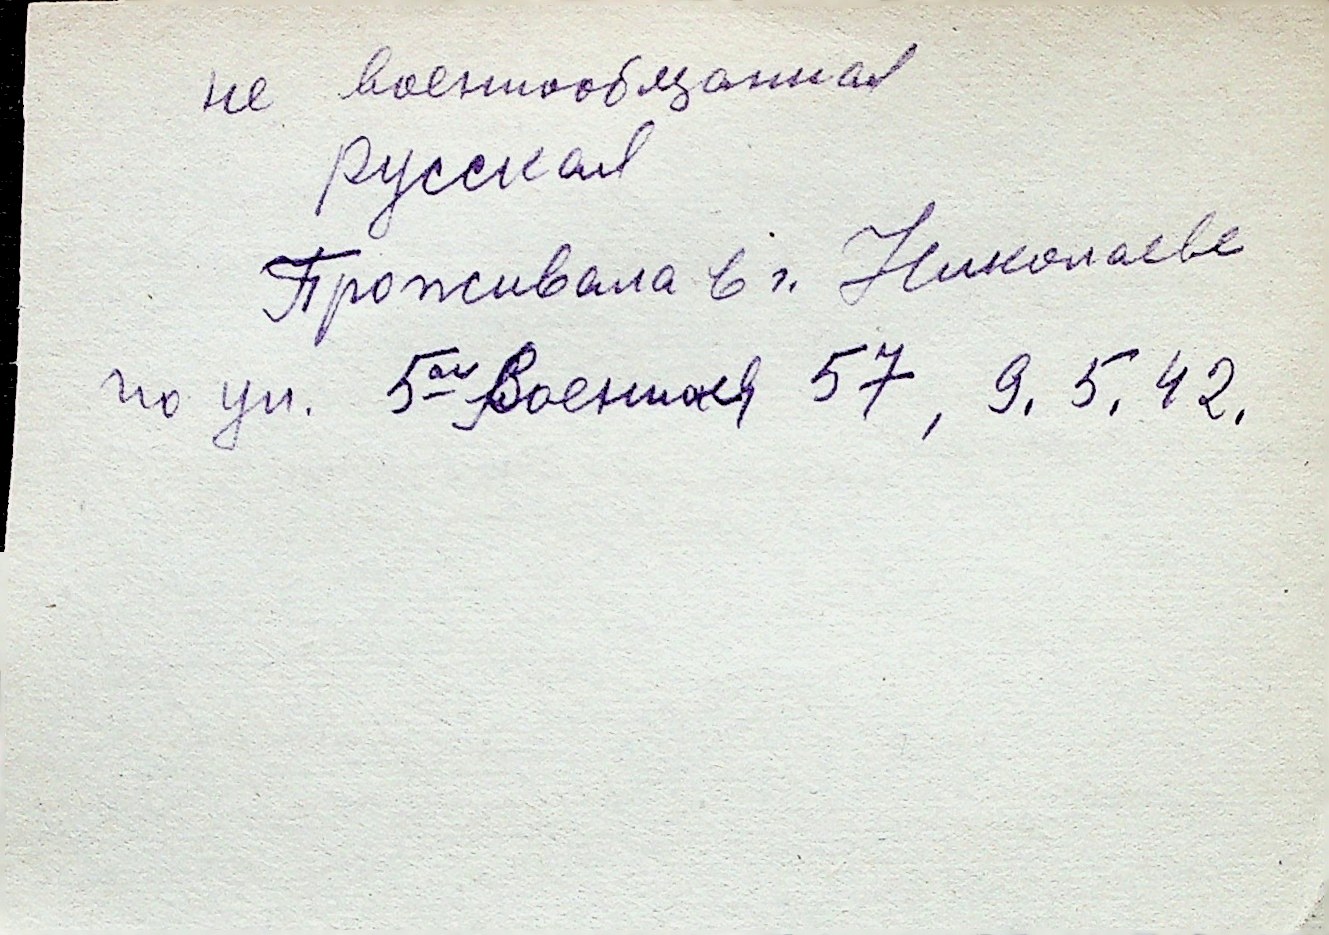 не военнообязанная
русская
Проживала в г. Николаеве
по ул. 5ая Военная 57, 9.5.42.